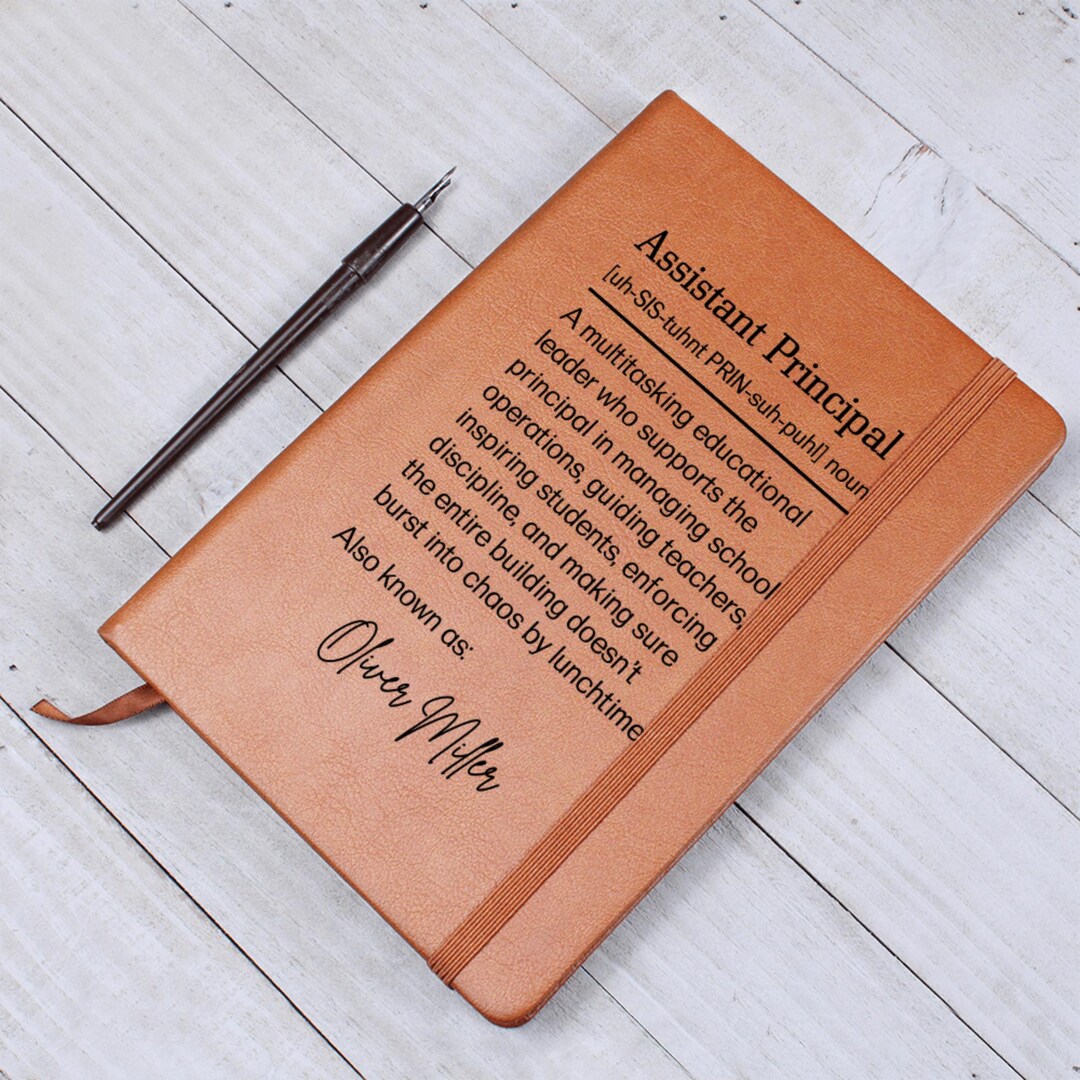 Assistant Principal
[uh-SIS-tuhnt PRIN-suh-puhl] noun
A multitasking educational
leader who supports the
principal in managing school
operations, guiding teachers,
inspiring students, enforcing
discipline, and making sure
the entire building doesn't
burst into chaos by lunchtime
Also known as:
Oliver Miller